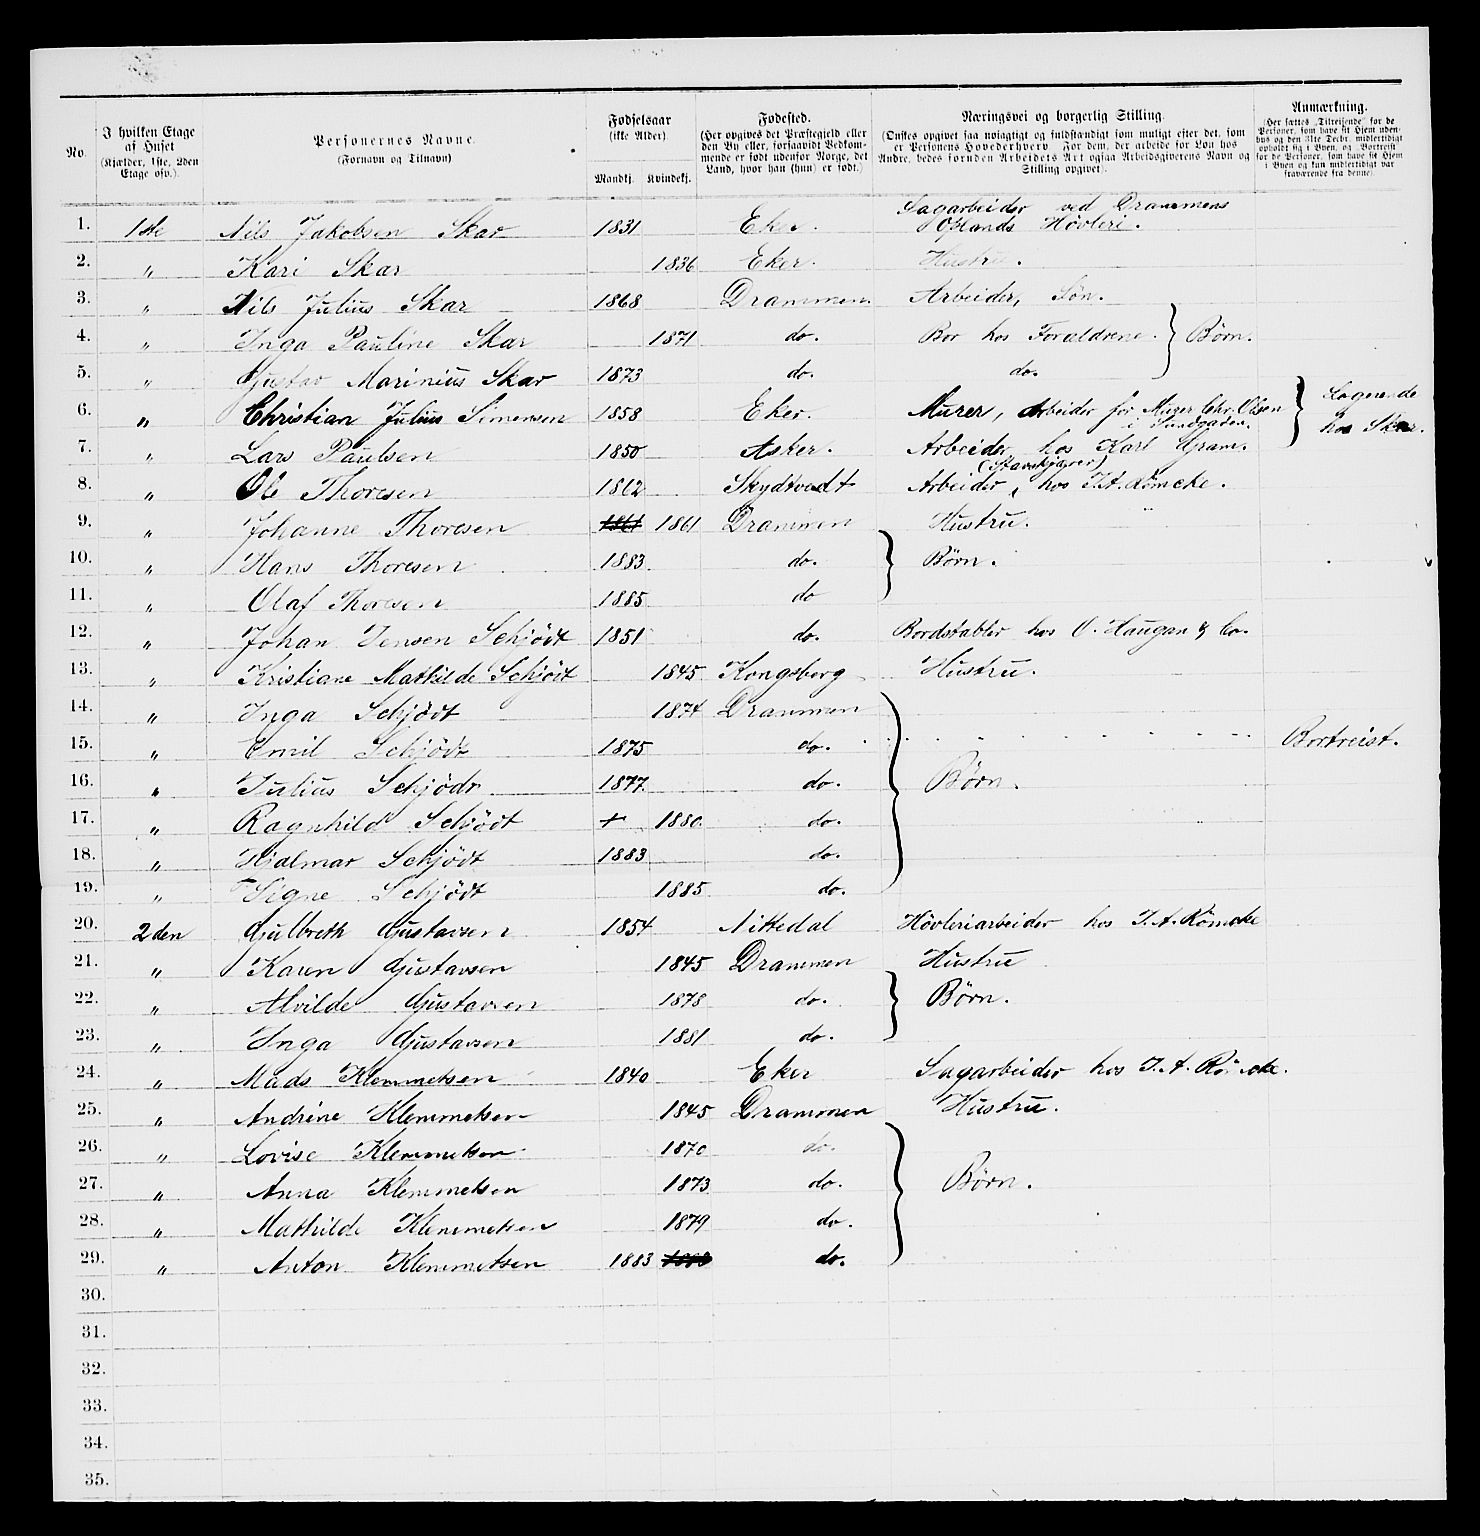 No. | I hvilken Etage af Huset (Kjælder, 1ste, 2den Etage osv.). | Personernes Navne. (Fornavn og Tilnavn) | Fødselsaar (ikke Alder). Mandkj. | Kvindekj. | Fødested. (Her opgives det Præstegjeld eller den By eller, forsaavidt Vedkommende er født udenfor Norge, det Land, hvor han (hun) er født.) | Næringsvei og borgerlig Stilling. (Ønskes opgivet saa nøiagtigt og fuldstændigt som muligt efter det, som er Personens Hovederhverv. For dem, der arbeide for Løn hos Andre, bedes foruden Arbeidets Art ogsaa Arbeidsgiverens Navn og Stilling opgivet). | Anmærkning. (Her sættes „Tilreisende“ for de Personer, som have sit Hjem udenbys og den 31te Decbr. midlertidigt opholdt sig i Byen, og „Bortreist“ for de Personer, som have sit Hjem i Byen og kun midlertidigt var fraværende fra denne).
1. 1ste Nils Jakobsen Skar 1831 Eker. Sagarbeider ved Drammens Oplands Høvleri.
2. " Kari Skar 1836 Eker. Hustru.
3. " Nils Julius Skar 1868 Drammen. Arbeider, Søn.
4. " Inga Pauline Skar 1871 do. Bor hos Foraldrene. } Børn.
5. " Gustav Marinius Skar 1873 do. do.
6. " Christian Julius Simensen 1858 Eker. Murer, Arbeider for Murer Chr. Olsen i Sandgaden. } Logerende
7. " Lars Paulsen 1850 Asker. Arbeider hos Karl Gram. hos Skar.
8. " Ole Thoresen 1862 Skydtvedt Arbeider, (Stavskjærer) hos I.A. Rømcke.
9. " Johanne Thoresen 1861 1861 Drammen Hustru.
10. " Hans Thoresen 1883. do. } Børn.
11. " Olaf Thoresen 1885 do
12. " Johan Jensen Schjödt 1851 do. Bordstabler hos O. Haugan & Co.
13. " Kristiane Mathilde Schjödt 1845 Kongsberg Hustru.
14. " Inga Schjödt 1874 Drammen
15. " Emil Schjödt 1875 do. Bortreist.
16. " Julius Schjödt 1877. do. } Børn.
17. " Ragnhild Schjödt + 1880. do.
18. " Hjalmar Schjödt 1883 do.
19. " Signe Schjödt 1885 do.
20. 2den Gulbreth Gustavsen 1854 Nittedal Høvleriarbeider hos I.A. Rømcke
21. " Karen Gustavsen 1845 Drammen Hustru
22. " Alvilde Gustavsen 1878 do. } Børn.
23. " Inga Gustavsen 1881 do.
24. " Mads Klemmetsen 1840 Eker Sagarbeider hos I.A. Rømcke.
25. " Andrine Klemmetsen 1845 Drammen Hustru.
26. " Lovise Klemmetsen 1870 do.
27. " Anna Klemmetsen 1873 do. } Børn.
28. " Mathilde Klemmetsen 1879 do.
29. " Anton Klemmetsen 1883 do.
30.
31.
32.
33.
34.
35.